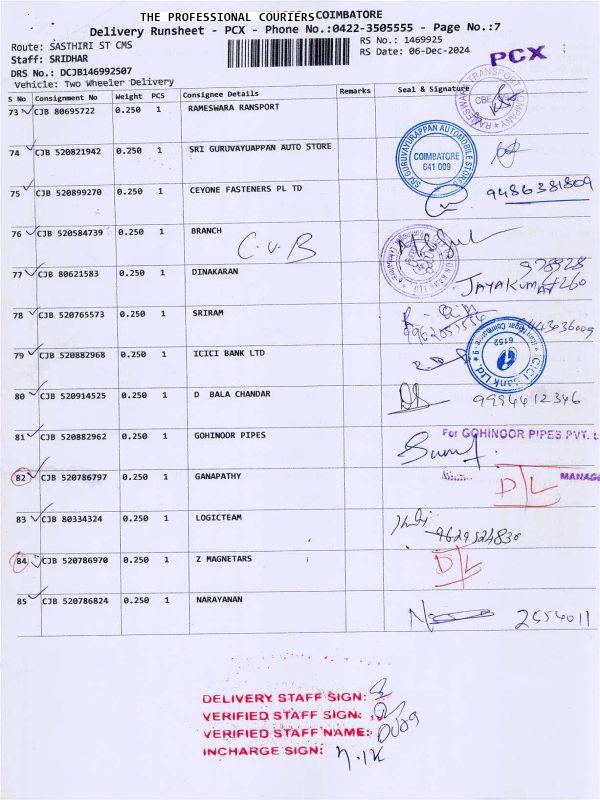 THE PROFESSIONAL COURIERS COIMBATORE
Delivery Runsheet - PCX - Phone No.:0422-3505555 - Page No.:7
Route: SASTHIRI ST CMS
RS No.: 1469925
Staff: SRIDHAR
RS Date: 06-Dec-2024
PCX
DRS No.: DCJB146992507
Vehicle: Two Wheeler Delivery
S No Consignment No Weight PCS Consignee Details Remarks Seal & Signature
73 CJB 80695722 0.250 1 RAMESWARA RANSPORT
74 CJB 520821942 0.250 1 SRI GURUVAYUAPPAN AUTO STORE
SRI GURUVAYURAPPAN AUTOMOBILE STORES
COIMBATORE
641 009
75 CJB 520899270 0.250 1 CEYONE FASTENERS PL TD 9486381809
76 CJB 520584739 0.250 1 BRANCH
C.U.B
77 CJB 80621583 0.250 1 DINAKARAN
JAYAKUMAR
78 CJB 520765573 0.250 1 SRIRAM
79 CJB 520882968 0.250 1 ICICI BANK LTD
ICICI Bank Ltd
6152
80 CJB 520914525 0.250 1 D BALA CHANDAR 9994412346
81 CJB 520882962 0.250 1 GOHINOOR PIPES
For GOHINOOR PIPES PVT. L
82 CJB 520786797 0.250 1 GANAPATHY D/L
MANAGE
83 CJB 80334324 0.250 1 LOGICTEAM 9629524830
84 CJB 520786970 0.250 1 Z MAGNETARS D/L
85 CJB 520786824 0.250 1 NARAYANAN 2554011
DELIVERY STAFF SIGN:
VERIFIED STAFF SIGN:
VERIFIED STAFF NAME:
INCHARGE SIGN: